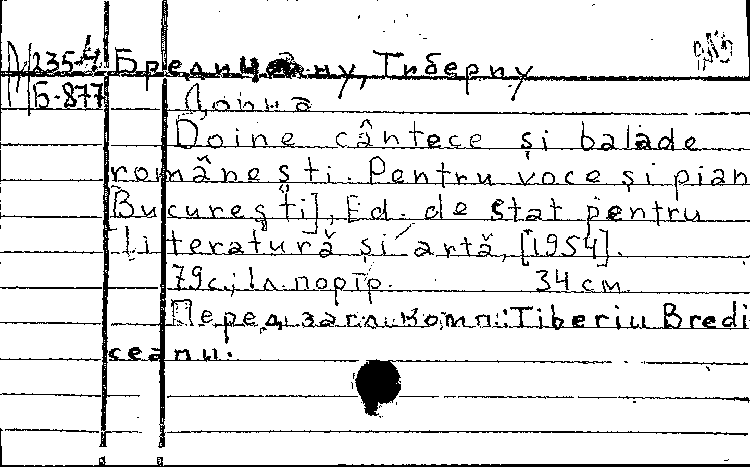 М235-4 Бредичану, Тиберпу
Б-877 Доина
Doine cântece și balade
românești. Pentru voce și pian
[București], Ed. de stat pentru
literatură și artă, [1954].
79с., 1л. портр. 34 см.
Перед загл. комп.: Tiberiu Bredi
ceanu.